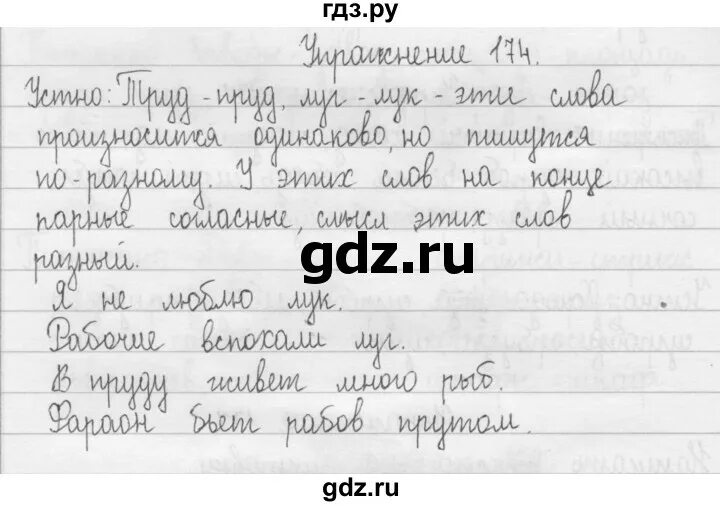 гдз.ру
Упражнение 174.
Устно: Труд - пруд, луг - лук - эти слова
произносится одинаково, но пишутся
по-разному. У этих слов на конце
парные согласные, смысл этих слов
gdz.ru
разный.
Я не люблю лук.
Рабочие вспохали луг.
В пруду живет много рыб.
Фараон бьет рабов прутом.
gdz.ru